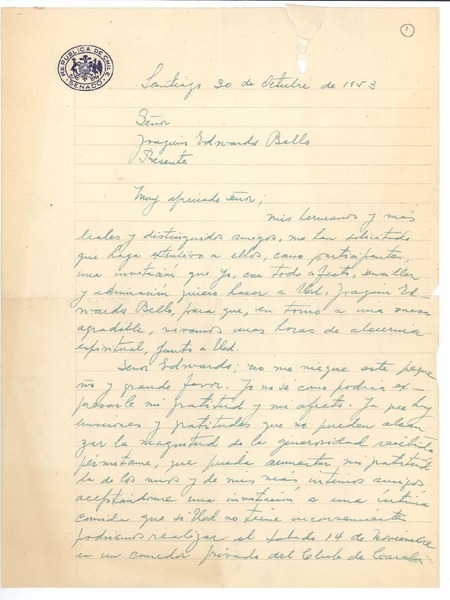 1
REPUBLICA DE CHILE
SENADO
Santiago 30 de Octubre de 1953
Señor
Joaquin Edwards Bello
Presente
Muy apreciado Señor;
mis hermanos y más
leales y distinguidos amigos, me han solicitado
que haga extentivo a ellos, como participantes,
una invitación que yo, con todo afecto,
y admiración quiero hacer a Ud. Joaquin Ed-
wards Bello, para que, en torno a una mesa
agradable, vivamos unas horas de
espiritual, junto a Ud.
Señor Edwards; no me niegue este peque
ño y grande favor. Yo no sé como podria ex-
presarle mi gratitud y mi afecto. Ya que hay
emociones y gratitudes que no pueden alcan
zar la magnitud de la generosidad recibida
permitame, que pueda aumentar mi gratitud
la de los mios y de mis mas intimos amigos
aceptandome una invitación a una intima
comida que si Ud no tiene inconvenientes
podriamos realizar el Sabado 14 de Noviembre
en un comedor privado del Club de